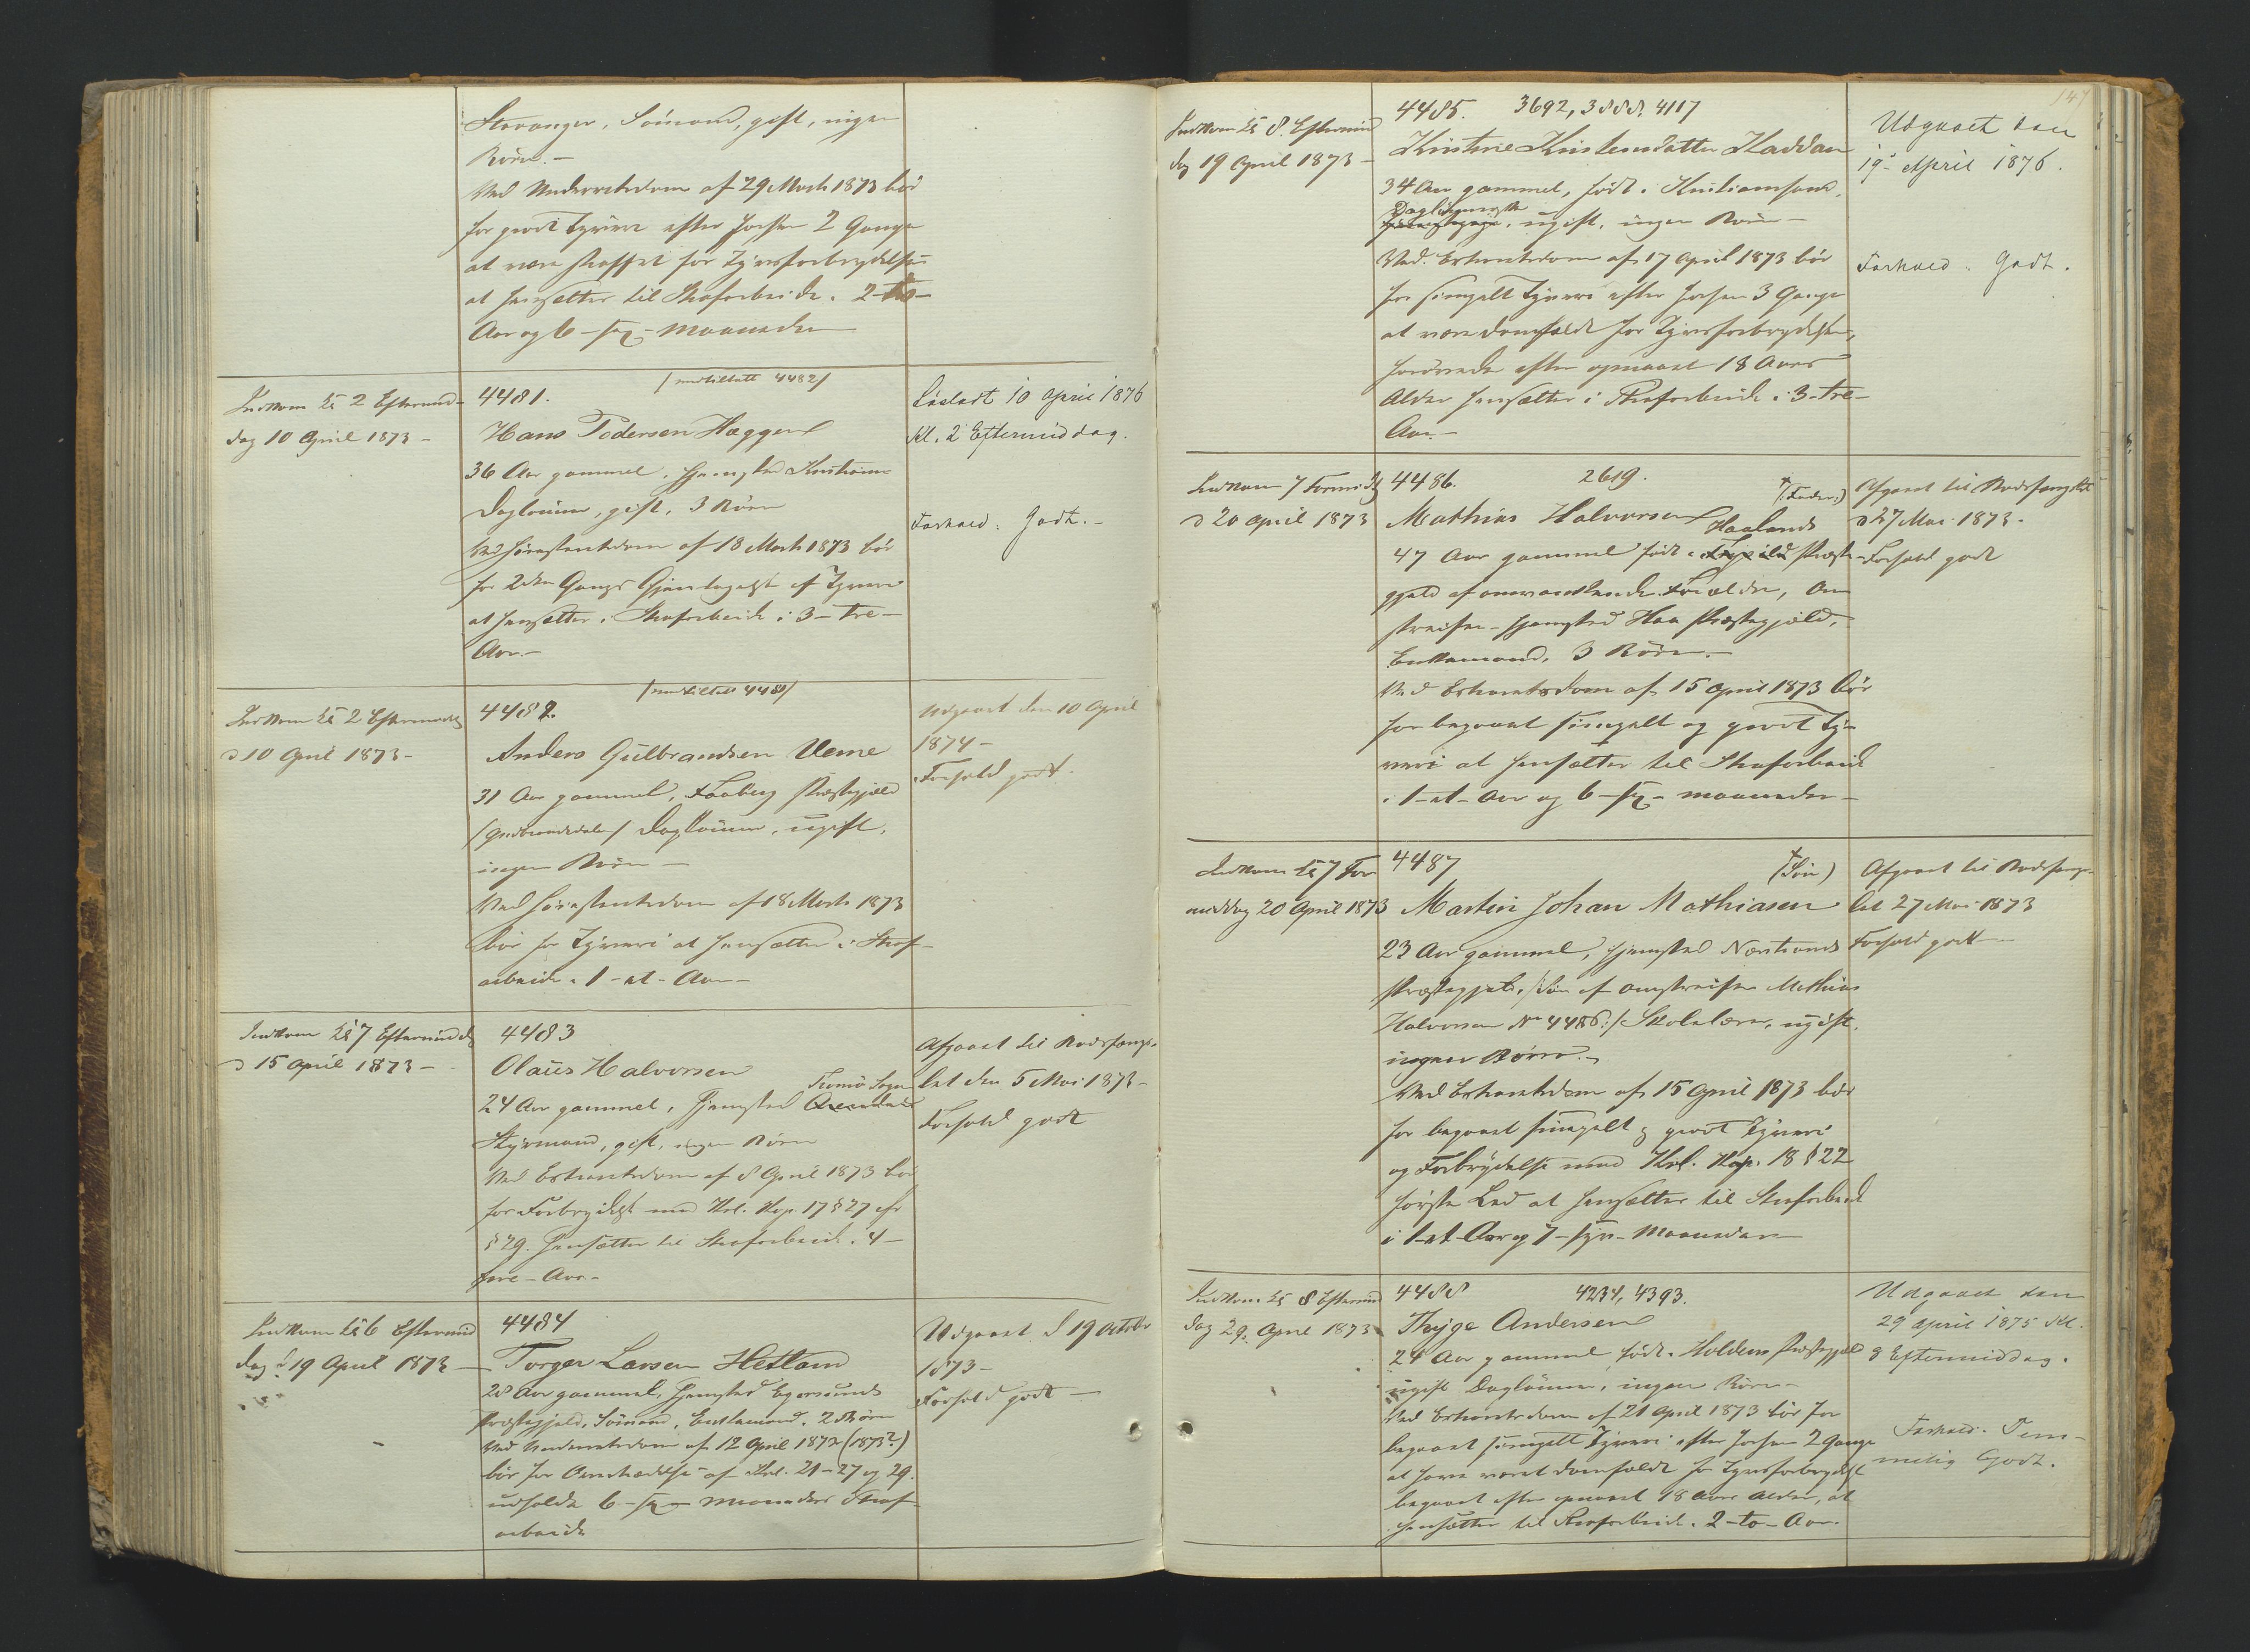 Stavanger, Sømand, gift, ingen
Børn.–
Ved Underretsdom af 29 Marts 1873 bør
for grovt Tyveri efter forhen 2 Gange
at være straffet for Tyvsforbrydelse
at hensættes til Strafarbeide i 2–to–
Aar og 6–sex–Maaneder
Indkom Kl 2 Eftermid-
dag 10 April 1873 –
4481.
/medtiltalt 4482/
Hans Pedersen Haggen
36 Aar gammel, Hjemsted Kristiania
Dagløner, gift, 3 Børn
Ved Høiesteretsdom af 18 Marts 1873 bør
for 2den Gangs Gjentagelse af Tyveri
at hensættes i Strafarbeide i 3–tre–
Aar.–
Løsladt 10 April 1876
Kl. 2 Eftermiddag.
Forhold: Godt.–
Indkom Kl 2 Eftermiddag
d 10 April 1873–
4482.
/medtiltalt 4481/
Anders Gulbrandsen
31 Aar gammel, Faaberg Præstegjæld
/Gudbrandsdalen/ Dagløner, ugift,
ingen Børn –
Ved Høiesteretsdom af 18 Marts 1873
bør for Tyveri at hensættes i Straf-
arbeide i 1–et–Aar–
Udgaaet den 10 April
1874–
Forhold godt.
Indkom Kl 7 Eftermidd
d 15 April 1873 –
4483
Olaus Halvorsen
Tromø Sogn
24 Aar gammel, Hjemsted Arendal
Styrmand, gift, ingen Børn
Ved Extraretsdom af 8 April 1873 bør
for Forbrydelse mod Krl. Kap. 17 § 27 cfr
§ 29. hensættes til Strafarbeide i 4–
fire–Aar.–
Afgaaet til Bodsfængs-
let den 5 Mai 1873–
Forhold godt
Indkom Kl 6 Eftermid
dag d 19 April 1873 –
4484
Torger Larsen Hetland
28 Aar gammel, Hjemsted Egersunds
Præstegjæld, Sømand, Enkemand, 2 Børn
Ved Underretsdom af 12 April 1872 (1873?)
bør for Overtrædelse af Krl. 21–27 og 29.
udholde 6–sex–Maaneders Straf-
arbeide
Udgaaet d 19 Octobr
1873–
Forhold godt –
147
Indkom Kl 8. Eftermid
dag 19 April 1873 –
4485. 3692, 3888, 4117
Kristine Kristensdatter Haddan
34 Aar gammel, født i Kristianssand,
ugift, ingen Børn –
Ved Extraretsdom af 17 April 1873 bør
for simpelt Tyveri efter forhen 3 Gange
at være domfældt for Tyvsforbrydelser,
forøvede efter opnaaet 18 Aars
Alder hensættes i Strafarbeide i 3–tre–
Aar.–
Udgaaet den
19de April 1876.
Forhold: Godt.
Indkom 7 Formidg
d 20 April 1873
4486. 2619.
(Fader)
Mathias Halvorsen
Haalands
47 Aar gammel født i Præste-
gjæld af omvankende Forældre, Om
streifer – Hjemsted Haa Præstegjæld,
Enkemand, 3 Børn.–
Ved Extraretsdom af 15 April 1873 bør
for begaaet simpelt og grovt Ty-
veri at hensættes til Strafarbeide
i 1–et–Aar og 6–sex–Maaneder–
Afgaaet til Bodsfængslet
d 27 Mai 1873.
Forhold godt
Indkom Kl 7 For
middag 20 April 1873
4487
(Søn)
Martin Johan Mathiasen
23 Aar gammel, Hjemsted Nerstrands
Præstegjæld, /:Søn af Omstreifer Mathias
Halvorsen No 4486:/ Skolelærer, ugift,
ingen Børn.–
Ved Extraretsdom af 15 April 1873 bør
for begaaet simpelt og grovt Tyveri
og Forbrydelse mod Krl. Kap. 18 § 22
første Led at hensættes til Strafarbeid
i 1–et–Aar og 7–syv–Maaneder–
Afgaaet til Bodsfængs-
let 27 Mai 1873
Forhold godt –
Indkom Kl 8 Eftermid
dag 29. April 1873
4488 4234, 4393.
Thyge Andersen
24 Aar gammel født i Holdens Præstegjæld
ugift Dagløner, ingen Børn –
Ved Extraretsdom af 21 April 1873 bør for
begaaet simpelt Tyveri efter forhen 2 Gange
at have været domfældt for Tyvsforbrydelse
begaaet efter opnaaet 18 Aars Alder, at
hensættes til Strafarbeide i 2–to–Aar.
Udgaaet den
29 April 1875 Kl.
8 Eftermiddag.
Forhold: Tem-
melig Godt.